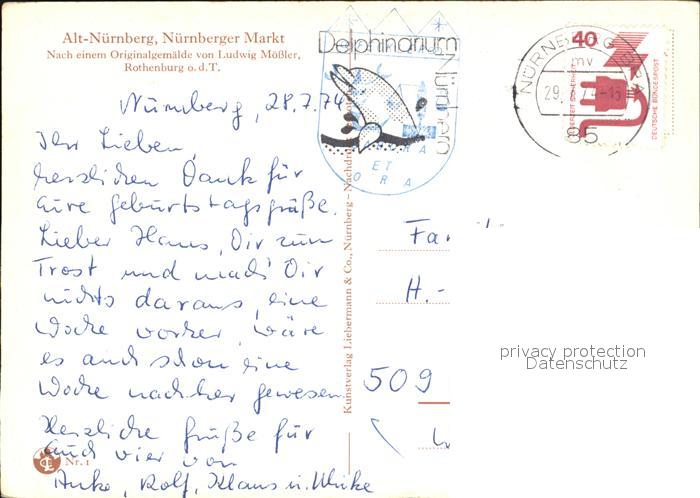 Alt-Nürnberg, Nürnberger Markt
Nach einem Originalgemälde von Ludwig Mößler,
Rothenburg o.d.T.
Nürnberg, 28.7.74
Ihr Lieben,
herzlichen Dank für
eure Geburtstagsgrüße.
Lieber Hans, Dir zum
Trost und mach' Dir
nichts daraus, eine
Woche vorher, wäre
es auch schon eine
Woche nachher gewesen
Herzliche Grüße für
euch vier von
Anke, Rolf, Klaus u. Ulrike
Nr. 1
Kunstverlag Liebermann & Co., Nürnberg - Nachdruck
Delphinarium
Nürnberg
ET
ORA
NÜRNBERG
mv
29.7.74-15
85
40
JEDERZEIT SICHERHEIT
DEUTSCHE BUNDESPOST
Fa
H.-
509
privacy protection
Datenschutz